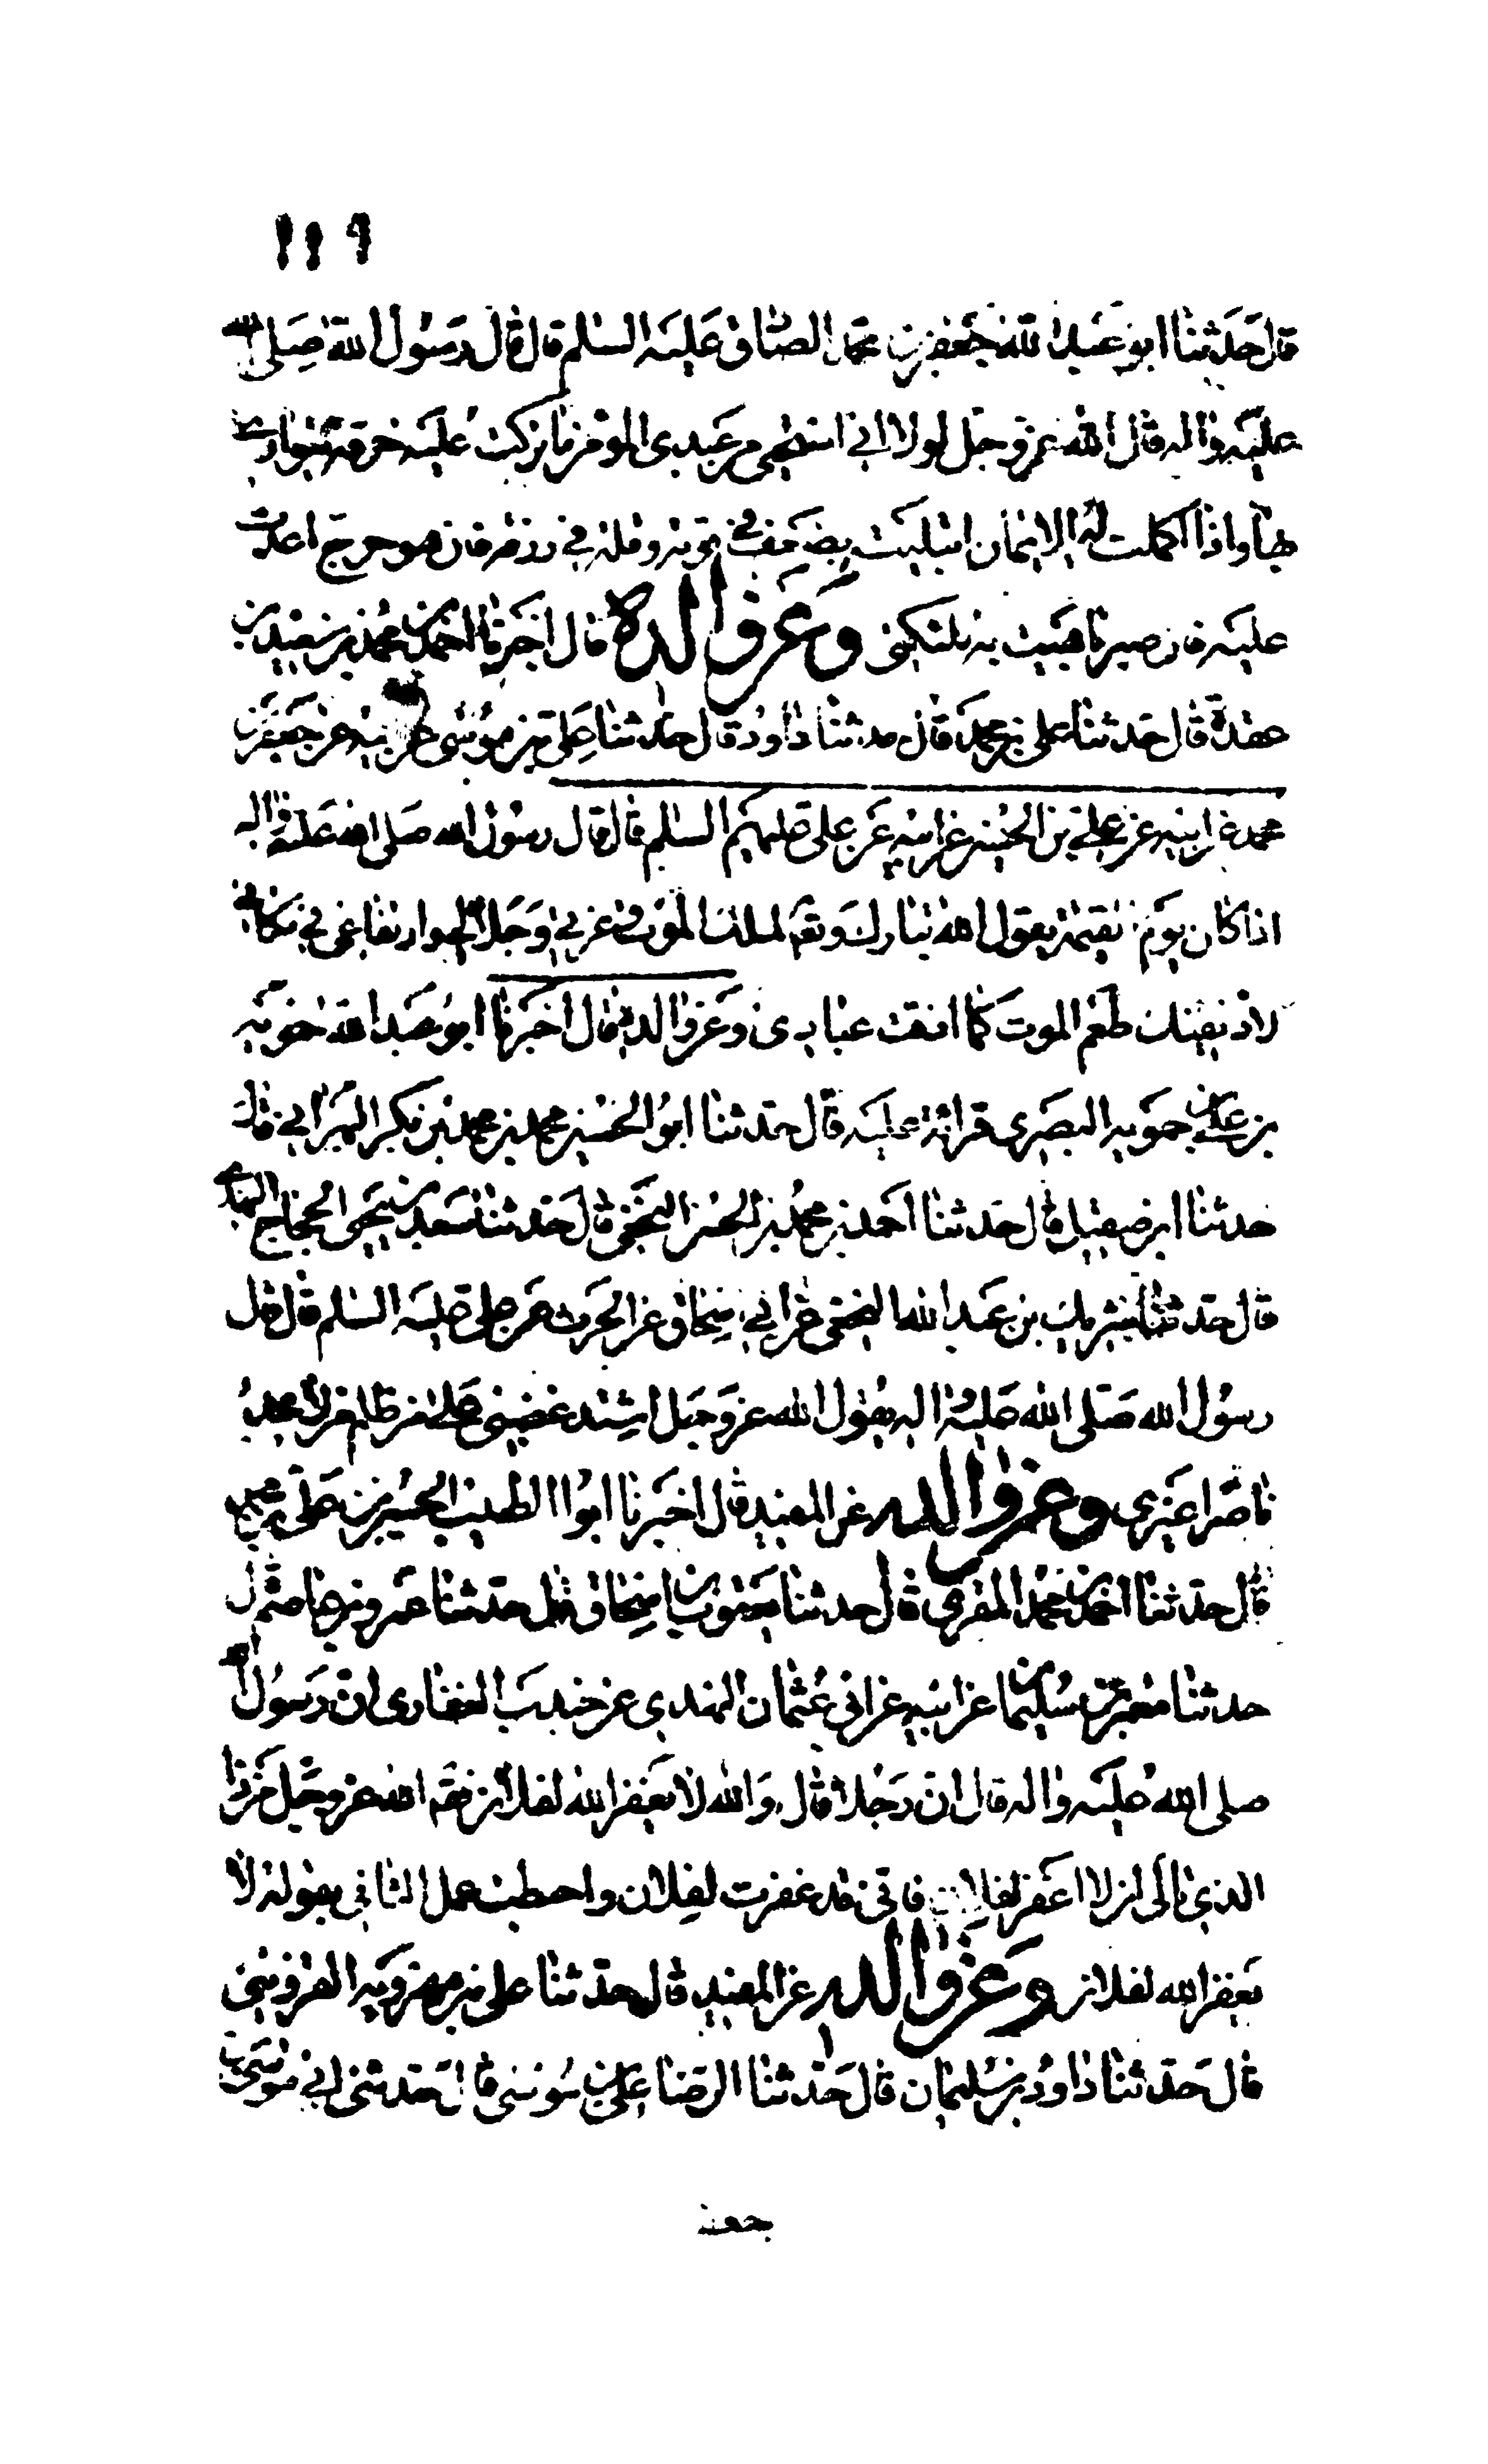 ١١٩
قال حدثنا ابو عبد الله جعفر بن محمد الصادق عليه السلم قال قال رسول الله صلى الله
عليه واله قال الله عز وجل لولا اني استحيي من عبدي المؤمن ما تركت عليه خرقة يتوارى
بها واذا اكملت له الايمان ابتليته بضعف في قوته وقلة في رزقه فان هو حرج اعدت
عليه فان صبر باهيت به ملئكتي وعن والده قال اخبرنا احمد بن محمد بن سعيد بن
عقدة قال حدثنا علي بن محمد قال حدثنا داود قال حدثنا علي بن موسى عن ابيه عن جعفر بن
محمد عن ابيه عن علي بن الحسين عن ابيه عن علي عليهم السلم قال قال رسول الله صلى الله عليه واله
اذا كان يوم القيمة يقول الله تبارك وتعالى لملك الموت وعزتي وجلالي وارتفاعي في مكاني
لاذيقنك طعم الموت كما اذقت عبادي وعن والده قال اخبرنا ابو عبد الله حمويه
بن علي بن حمويه البصري قراءة عليه قال حدثنا ابو الحسين محمد بن محمد بن بكر الهزاني قال
حدثنا ابن مقبل قال حدثنا احمد بن محمد بن الحسن النخعي قال حدثنا مسعر بن يحيى الحجاج النهدي
قال حدثنا شريك بن عبد الله النخعي عن ابي اسحاق عن الحرث عن علي عليه السلم قال قال
رسول الله صلى الله عليه واله يقول الله عز وجل اشتد غضبي على من ظلم من لا يجد
ناصرا غيري وعن والده عن المفيد قال اخبرنا ابو الطيب الحسين بن علي بن محمد
قال حدثنا احمد بن محمد المقري قال حدثنا يعقوب بن اسحاق قال حدثنا عمرو بن عاصم قال
حدثنا معمر بن سليمان عن ابيه عن ابي عثمان النهدي عن جندب الغفاري ان رسول الله
صلى الله عليه واله قال ان رجلا قال والله لا يغفر الله لفلان فقال الله عز وجل من ذا
الذي تالى ان لا اغفر لفلان فاني قد غفرت لفلان واحبطت عمل الثاني بقوله لا
يغفر الله لفلان وعن والده عن المفيد قال حدثنا علي بن مهرويه القزويني
قال حدثنا داود بن سليمان قال حدثنا الرضا علي بن موسى قال حدثني ابي موسى بن
جعفر